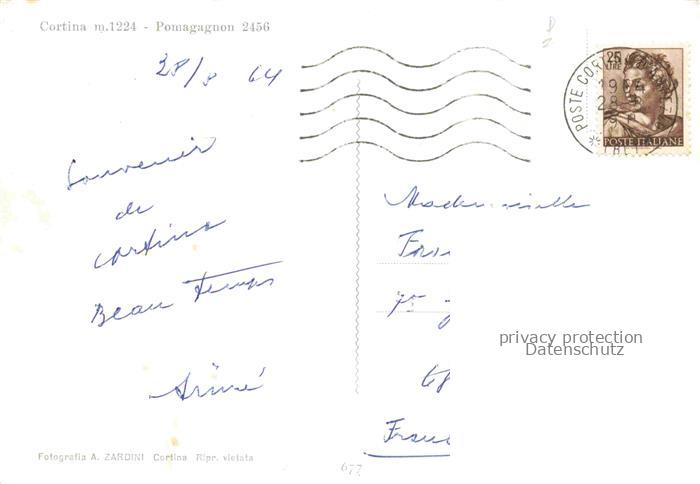 Cortina m.1224 - Pomagagnon 2456
28/8 64
Souvenir
de
Cortina
Beau Temps
Aimé
Fotografia A. ZARDINI Cortina Ripr. vietata
677
25
LIRE
POSTE ITALIANE
POSTE COR
1964
28.8
Mademoiselle
75
68
Franc
privacy protection
Datenschutz